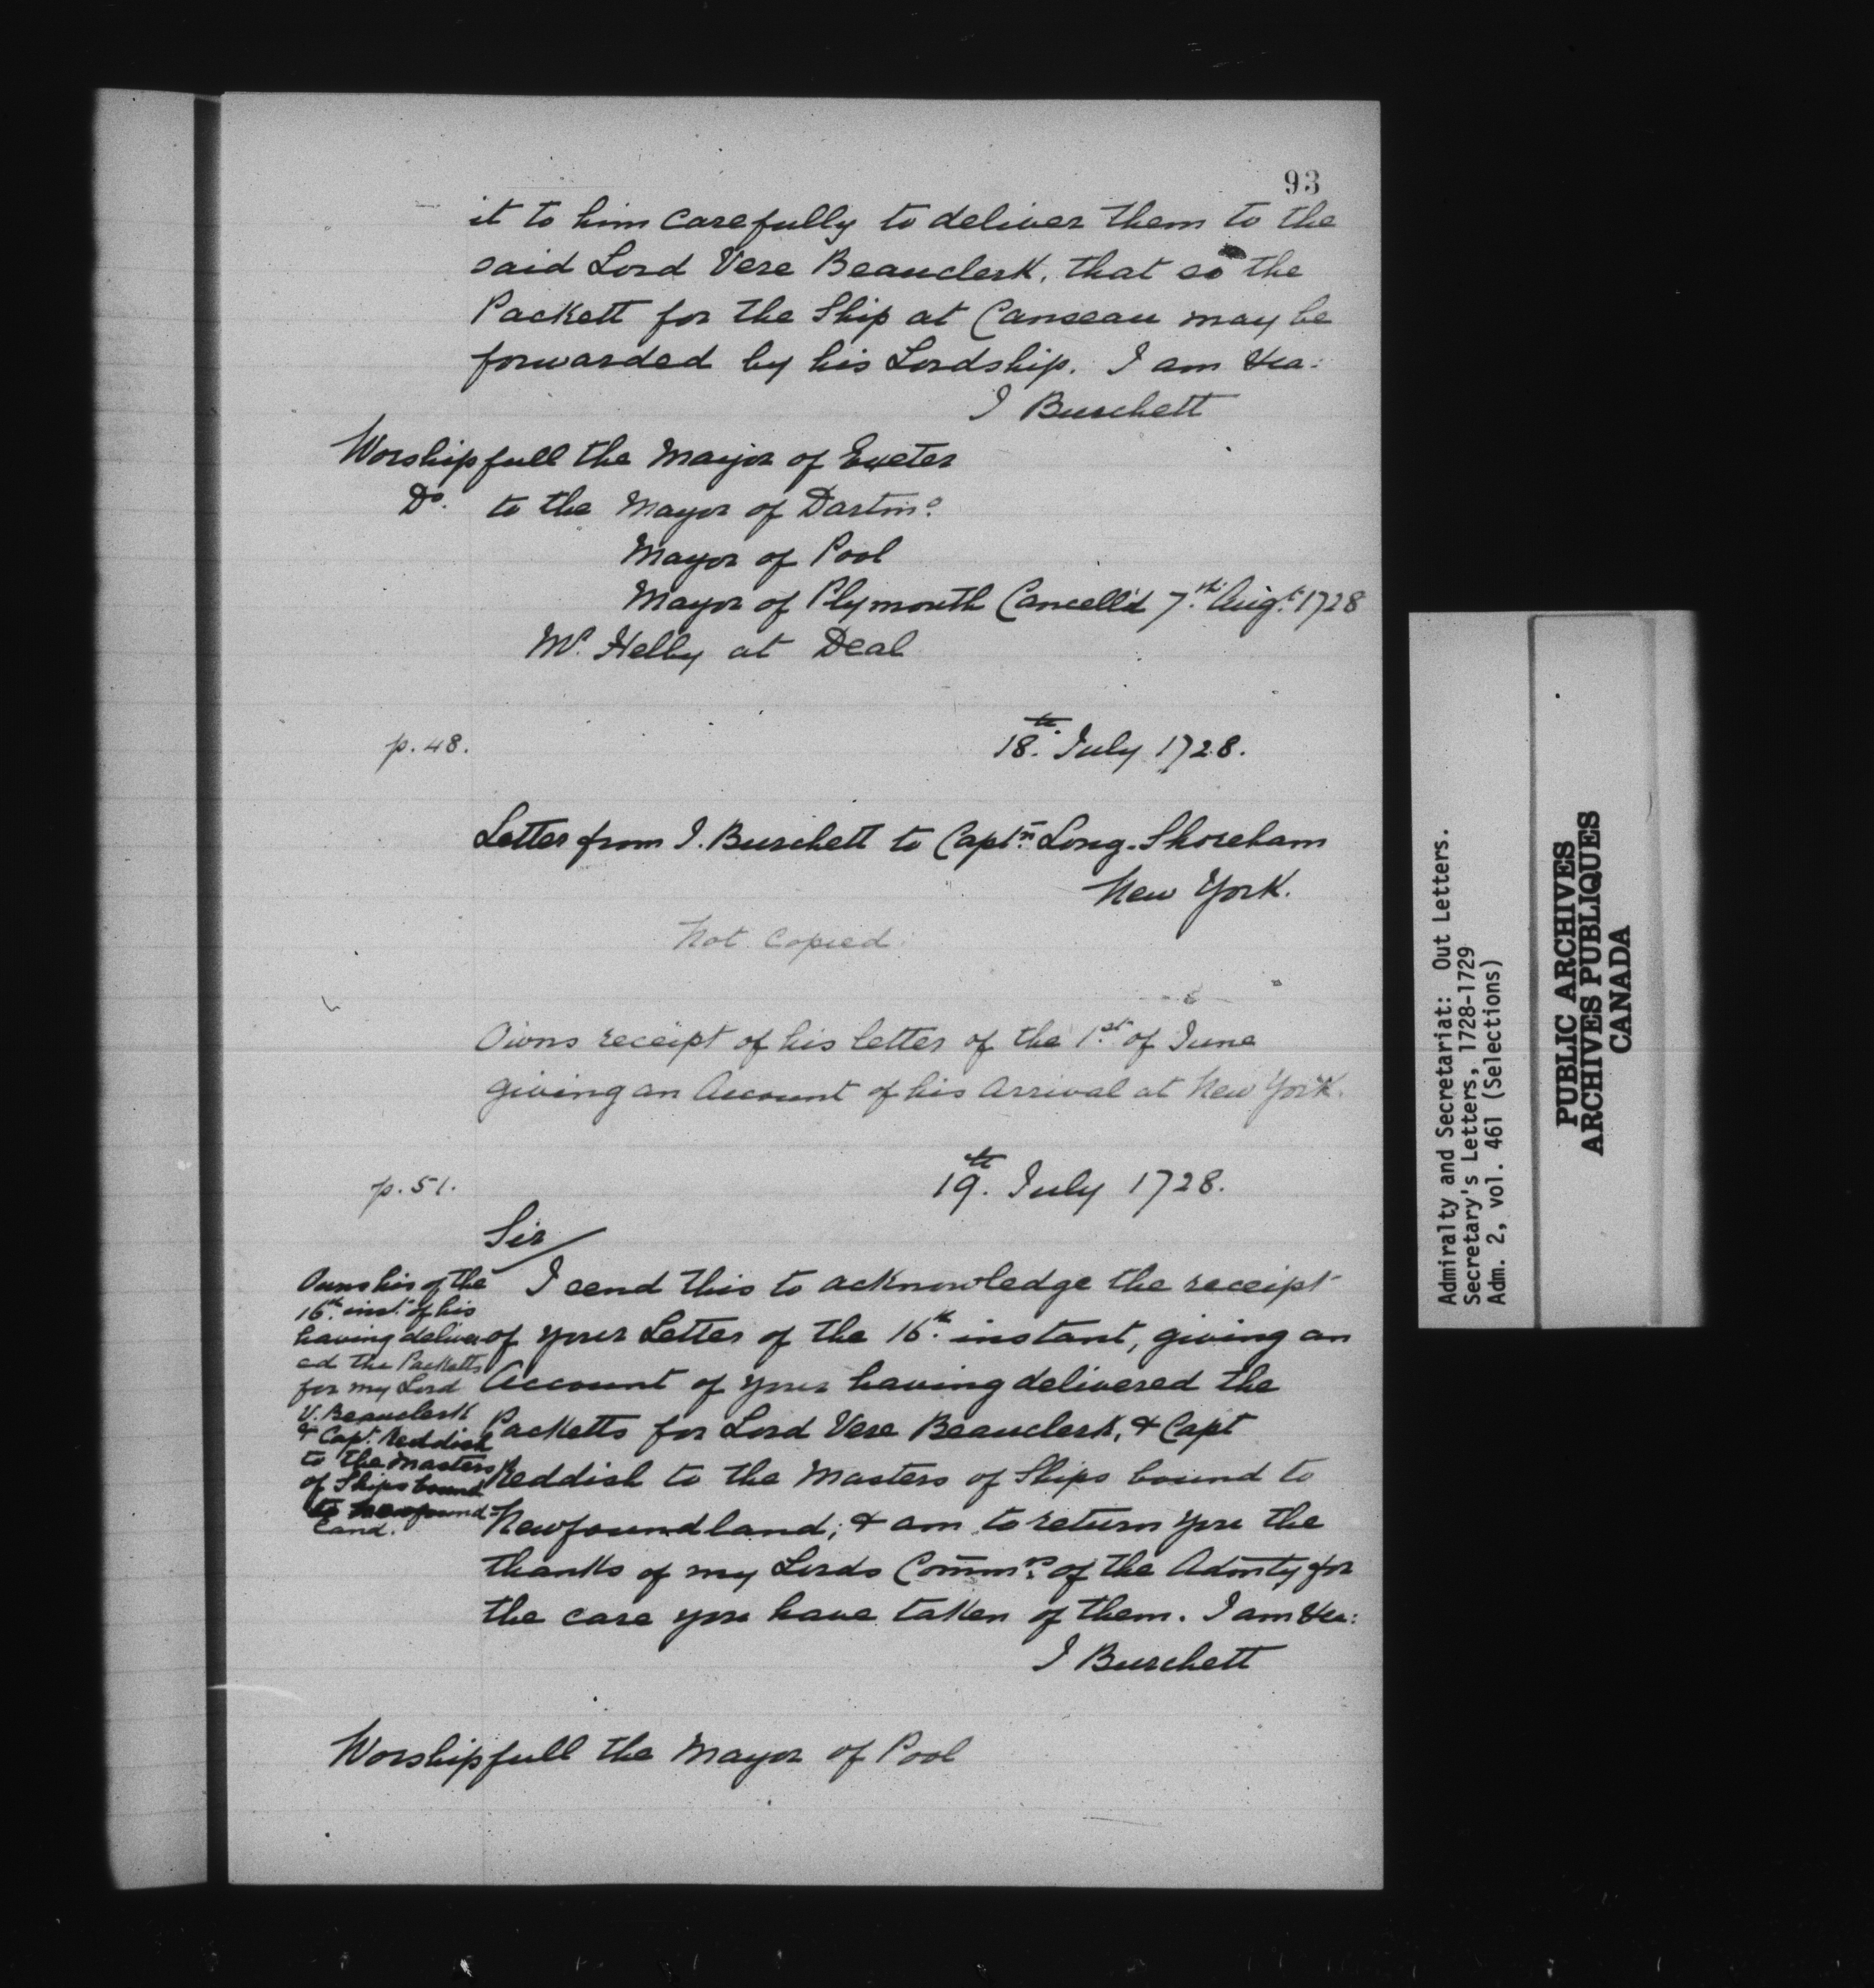 93
it to him carefully to deliver them to the
said Lord Vere Beauclerk, that so the
Packett for the Ship at Canseau may be
forwarded by his Lordship. I am &ca:
J Burchett
Worshipfull the Mayor of Exeter
Do. to the Mayor of Dartmo.
Mayor of Pool
Mayor of Plymouth Cancell'd 7.th Augt. 1728
Mr. Helby at Deal
p. 48.
18.th July 1728.
Letter from J. Burchett to Captn. Long - Shoreham
New York.
Not Copied.
Owns receipt of his letter of the 1st. of June
giving an Account of his Arrival at New York.
p. 51.
19.th July 1728.
Sir
Owns his of the
16th inst. of his
having deliver
ed the Packetts
for my Lord
V. Beauclerk
& Capt. Reddish
to the Masters
of Ships bound
to Newfound-
land.
I send this to acknowledge the receipt
of your Letter of the 16.th instant, giving an
Account of your having delivered the
Packetts for Lord Vere Beauclerk, & Capt
Reddish to the Masters of Ships bound to
Newfoundland; & am to return you the
thanks of my Lords Commrs. of the Admty for
the care you have taken of them. I am &ca:
J Burchett
Worshipfull the Mayor of Pool
Admiralty and Secretariat: Out Letters.
Secretary's Letters, 1728-1729
Adm. 2, vol. 461 (Selections)
PUBLIC ARCHIVES
ARCHIVES PUBLIQUES
CANADA